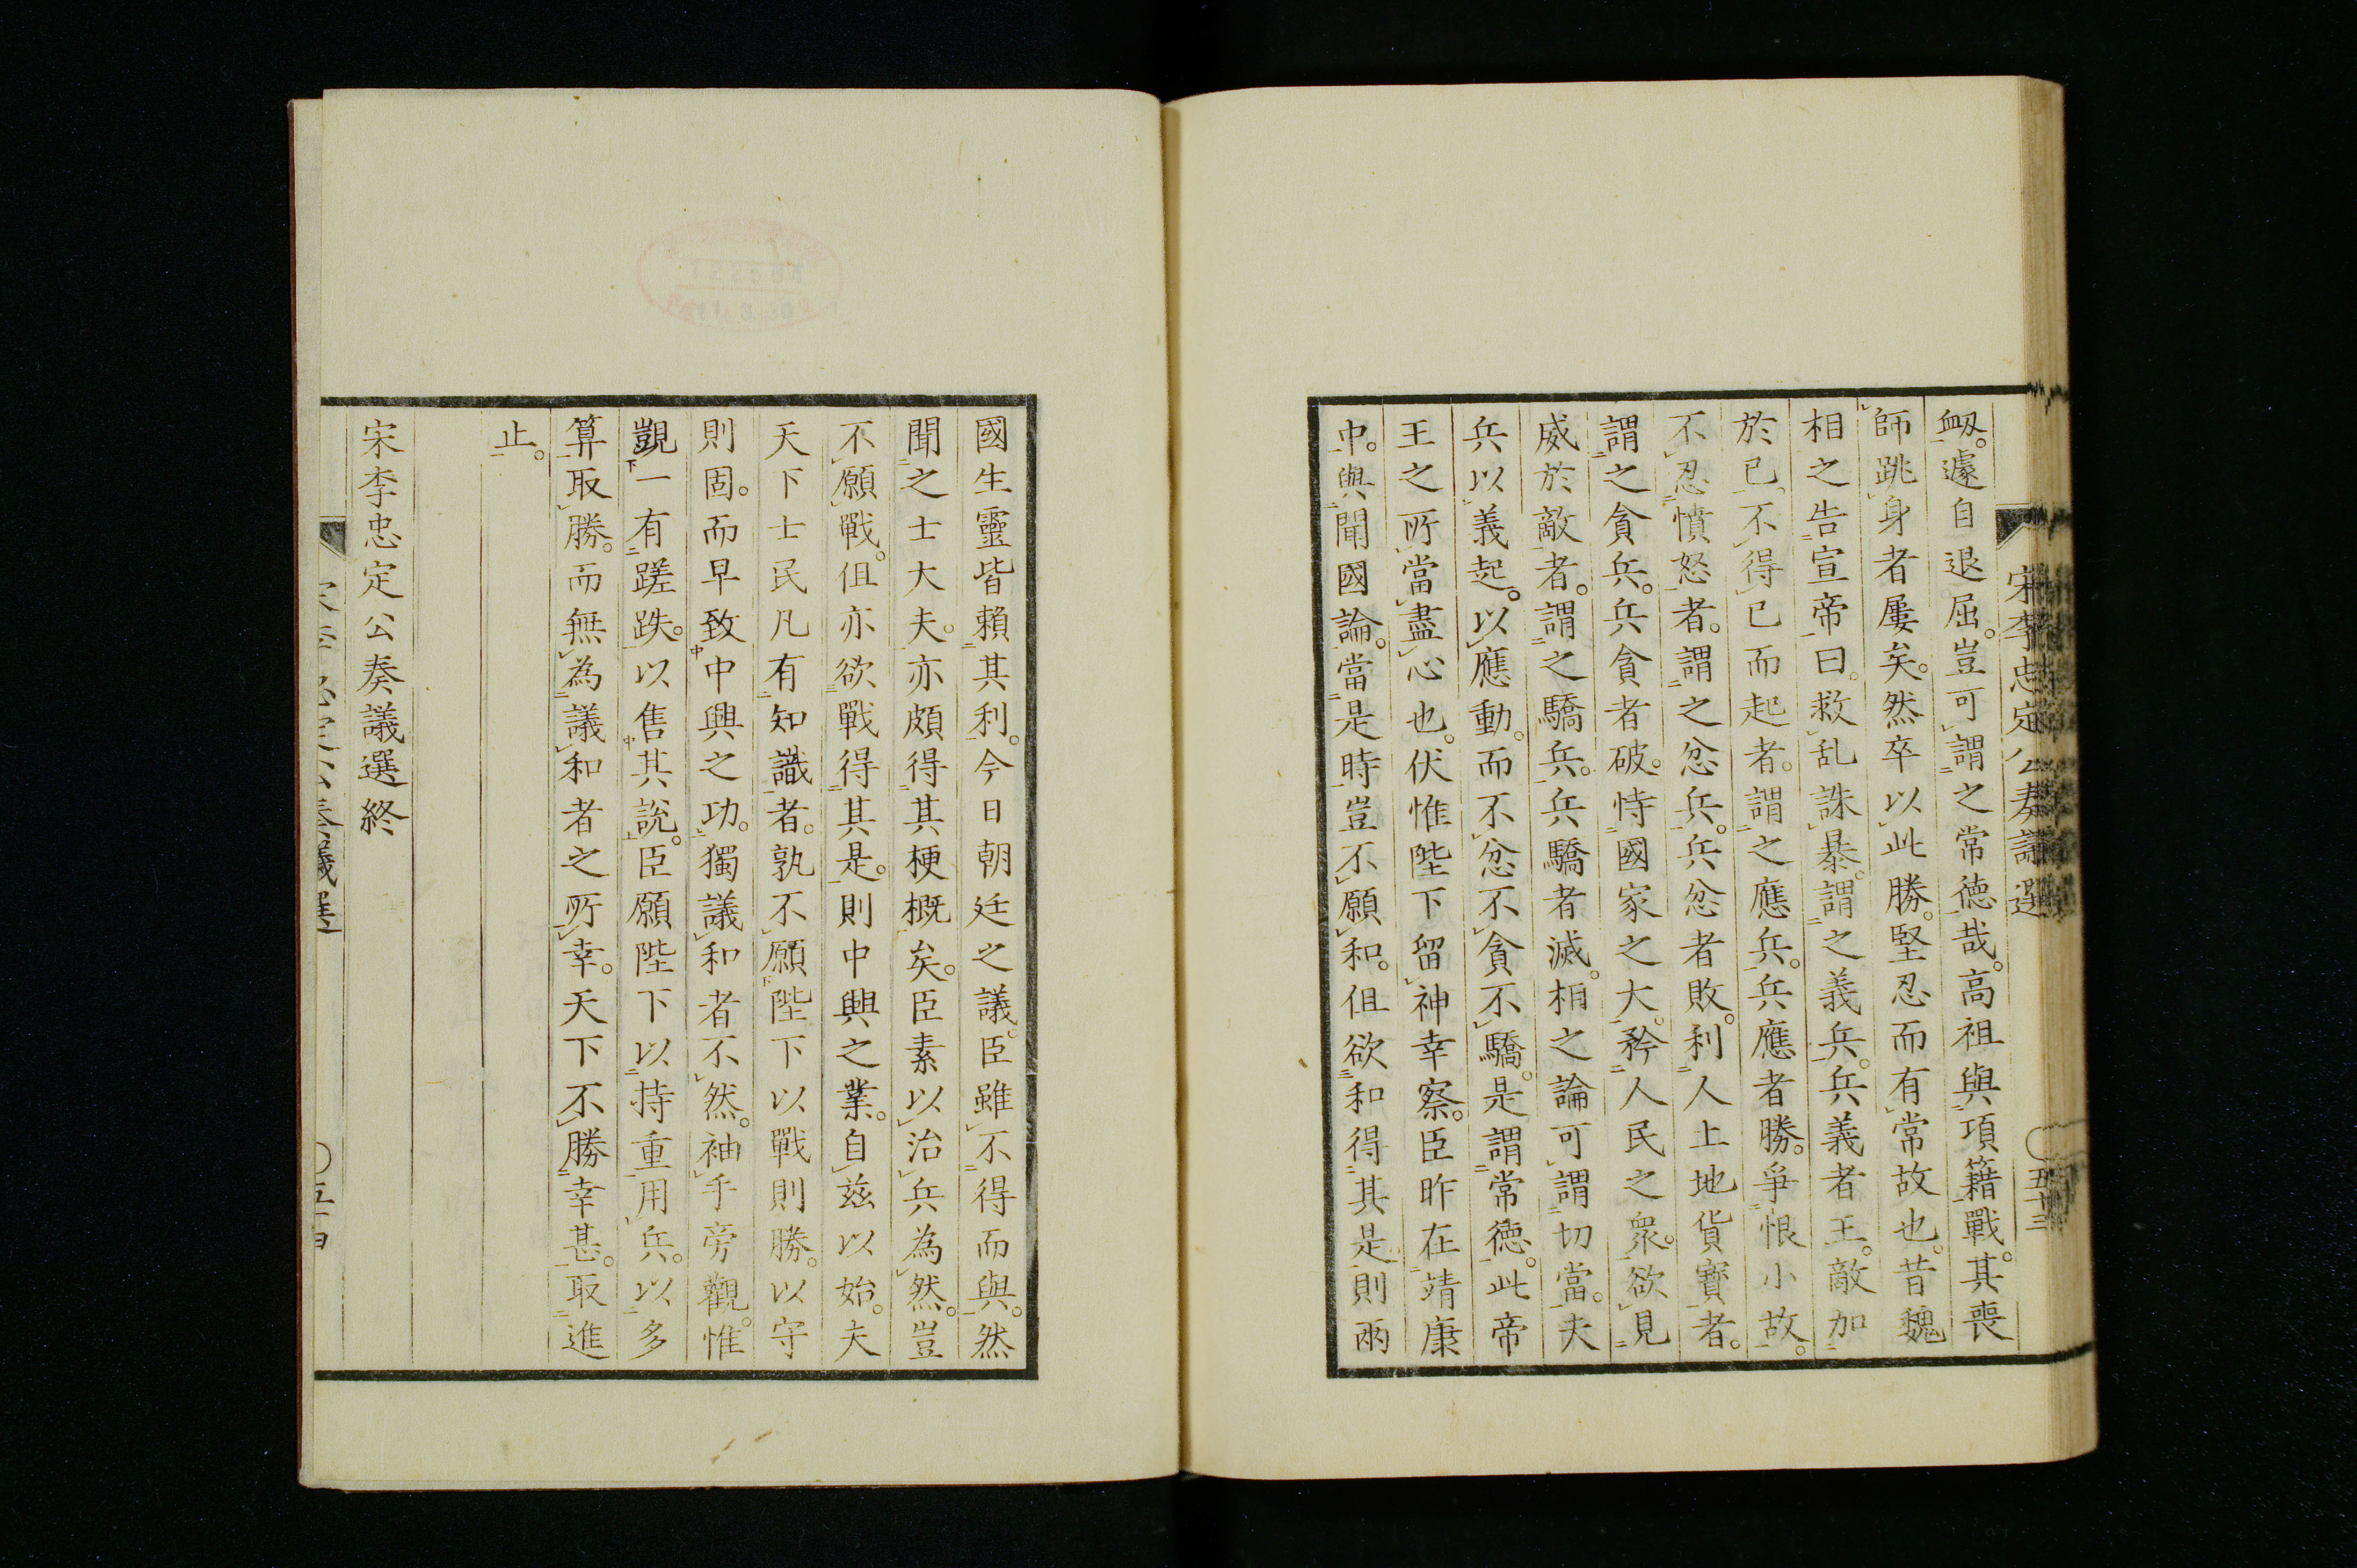 宋李忠定公奏議選
五十三
衂。遽自退屈。豈可謂之常德哉。高祖與項籍戰。其喪
師跳身者屢矣。然卒以此勝。堅忍而有常故也。昔魏
相之告宣帝曰。救乱誅暴。謂之義兵。兵義者王。敵加
於已。不得已而起者。謂之應兵。兵應者勝。爭恨小故。
不忍憤怒者。謂之忿兵。兵忿者敗。利人土地貨寶者。
謂之貪兵。兵貪者破。恃國家之大。矜人民之衆。欲見
威於敵者。謂之驕兵。兵驕者滅。相之論可謂切當。夫
兵以義起。以應動。而不忿不貪不驕。是謂常德。此帝
王之所當盡心也。伏惟陛下留神幸察。臣昨在靖康
中。與聞國論。當是時豈不願和。但欲和得其是。則兩
國生靈皆賴其利。今日朝廷之議。臣雖不得而與。然
聞之士大夫。亦頗得其梗概矣。臣素以治兵為然。豈
不願戰。但亦欲戰得其是。則中興之業。自茲以始。夫
天下士民凡有知識者。孰不願陛下以戰則勝。以守
則固。而早致中興之功。獨議和者不然。袖手旁觀。惟
覬一有蹉跌。以售其說。臣願陛下以持重用兵。以多
算取勝。而無為議和者之所幸。天下不勝幸甚。取進
止。
宋李忠定公奏議選終